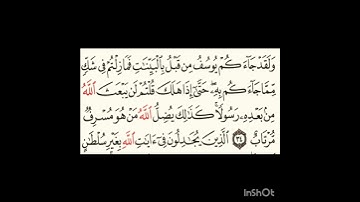 وَلَقَدْ جَاءَكُمْ يُوسُفُ مِن قَبْلُ بِالْبَيِّنَاتِ فَمَا زِلْتُمْ فِي شَكٍّ
مِّمَّا جَاءَكُم بِهِ حَتَّىٰ إِذَا هَلَكَ قُلْتُمْ لَن يَبْعَثَ اللَّهُ
مِن بَعْدِهِ رَسُولًا كَذَٰلِكَ يُضِلُّ اللَّهُ مَنْ هُوَ مُسْرِفٌ
مُّرْتَابٌ ٣٤ الَّذِينَ يُجَادِلُونَ فِي آيَاتِ اللَّهِ بِغَيْرِ سُلْطَانٍ
InShOt